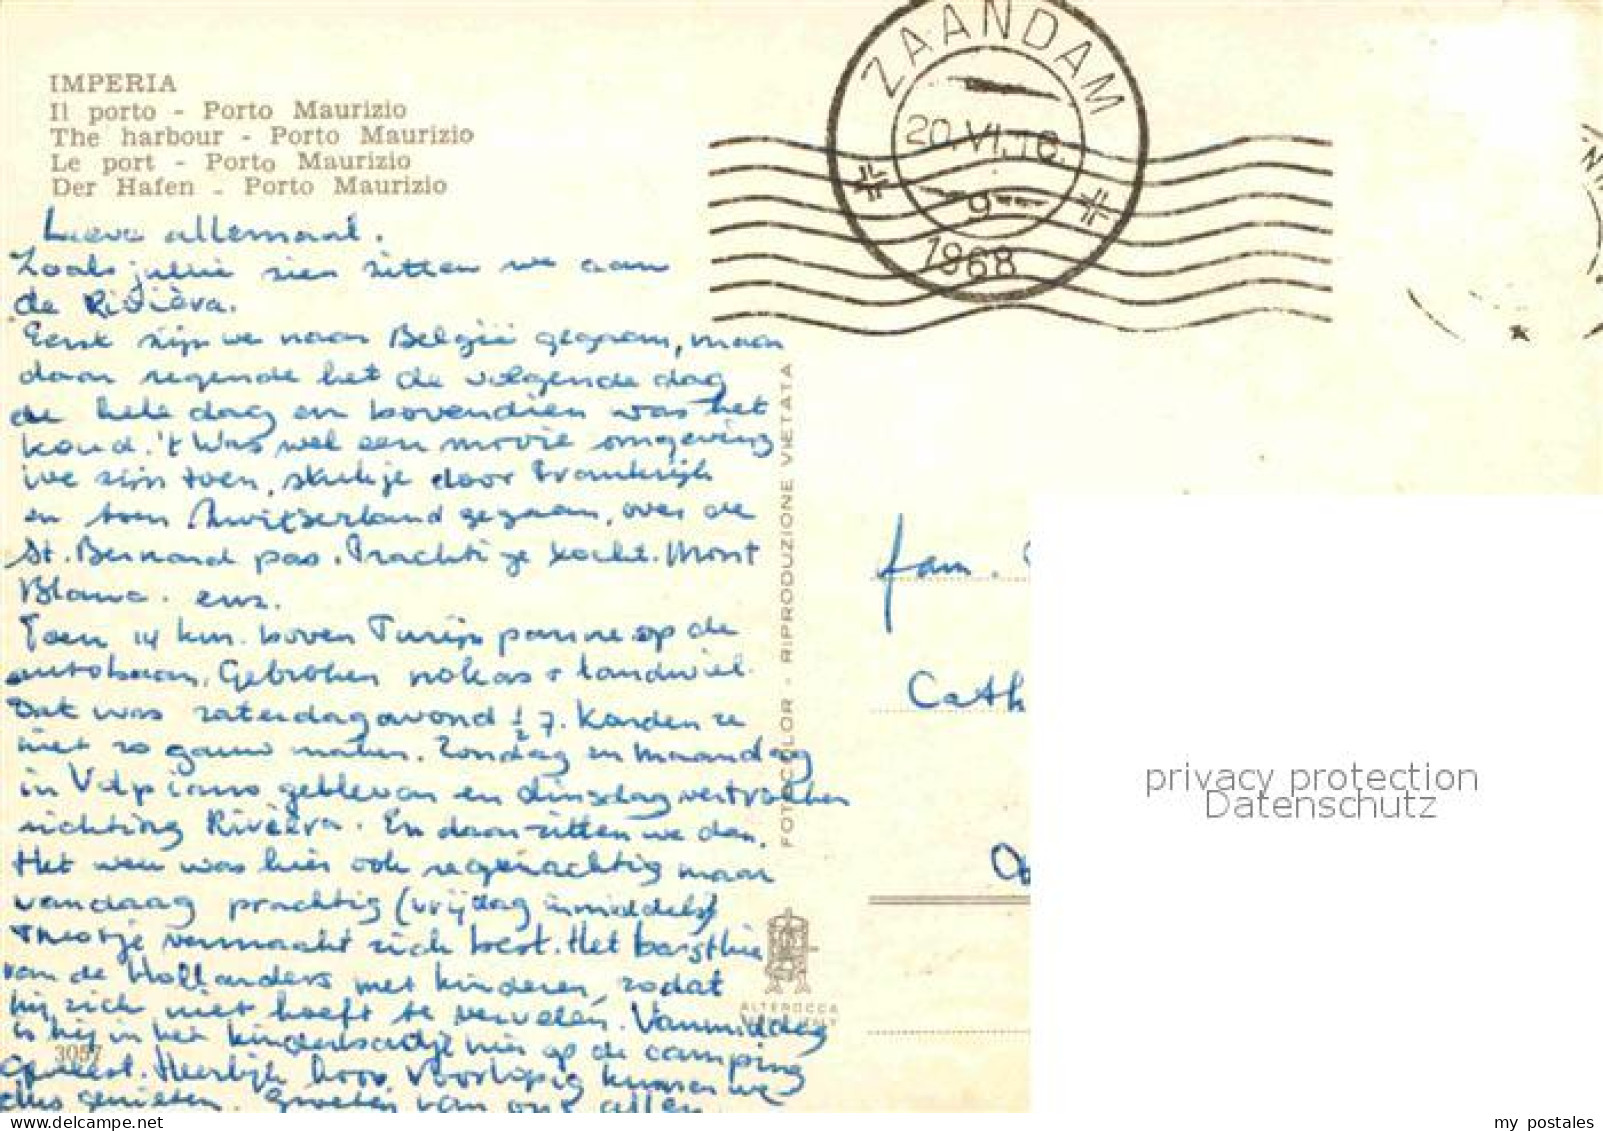 IMPERIA
Il porto - Porto Maurizio
The harbour - Porto Maurizio
Le port - Porto Maurizio
Der Hafen - Porto Maurizio
Lieve allemaal.
Zoals jullie zien zitten we aan
de Rivièra.
Eerst zijn we naar België gegaan, maar
daar regende het de volgende dag
de hele dag en bovendien was het
koud. 't Was wel een mooie omgeving
we zijn toen, stukje door Frankrijk
en toen Zwitserland gegaan, over de
St. Bernard pas. Prachtige tocht. Mont
Blanc. enz.
Toen 14 km. boven Turijn panne op de
autobaan. Gebroken nokas + tandwiel.
Dat was zaterdagavond ½ 7. Konden ze
niet zo gauw maken. Zondag en maandag
in Volpiano gebleven en dinsdag vertrokken
richting Rivièra. En daar zitten we dan.
Het weer was hier ook regenachtig maar
vandaag prachtig (vrijdag inmiddels)
Theotje vermaakt zich best. Het barst hier
van de Hollanders met kinderen, zodat
hij zich niet hoeft te vervelen. Vanmiddag
is hij in het kinderbadje hier op de camping
geweest. Heerlijk hoor. Voorlopig kunnen we
dus genieten. Groeten van ons allen
3057
FOTOCOLOR - RIPRODUZIONE VIETATA
ALTEROCCA
ZAANDAM
20.VI.16.
9
1968
fam.
Cath
privacy protection
Datenschutz
my postales